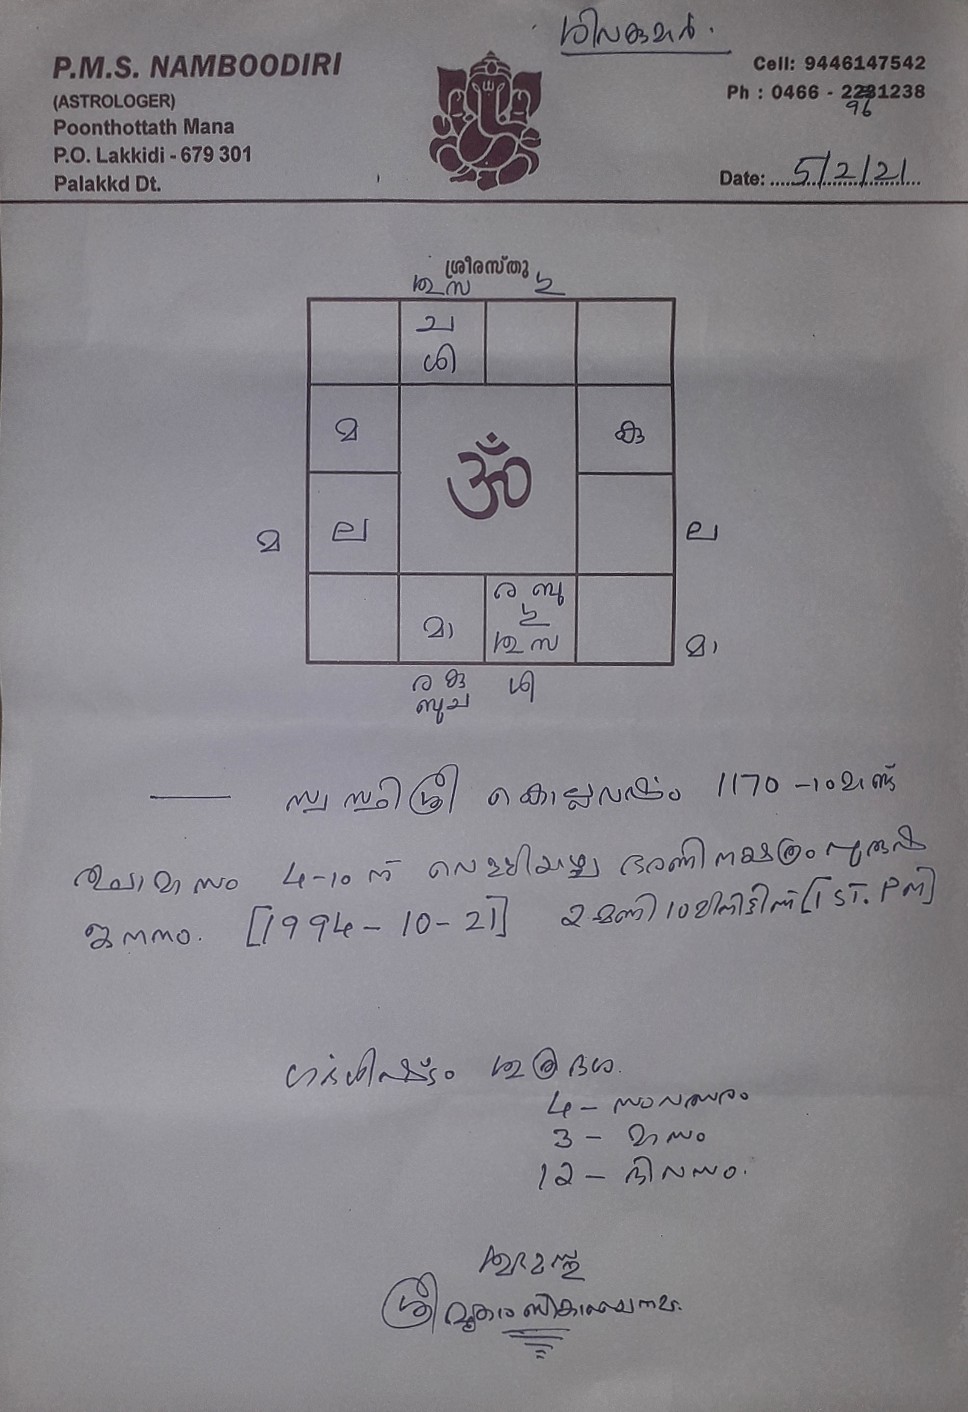 ശിവകുമാർ.
P.M.S. NAMBOODIRI
(ASTROLOGER)
Poonthottath Mana
P.O. Lakkidi - 679 301
Palakkd Dt.
Cell: 9446147542
Ph : 0466 - 2231238
96
Date: 5/2/21
ശ്രീരസ്തു
ശു സ ഗു
ച
ശി
മ
കു
ॐ
മ ല
ല
ര ബു
ഗു
മാ
ശു സ
മാ
ര കു ശി
ബു ച
സ്വസ്തിശ്രീ കൊല്ലവർഷം 1170-ാമാണ്ട്
തുലാമാസം 4-ാം ന് വെള്ളിയാഴ്ച ഭരണിനക്ഷത്രം പുരുഷ
ജനനം. [1994-10-21] 2 മണി 10 മിനിട്ടിന് [IST. PM]
ഗർഭശിഷ്ടം ശുക്രദശ.
4 - സംവത്സരം
3 - മാസം
12 - ദിവസം.
ശുഭമസ്തു
ശ്രീ